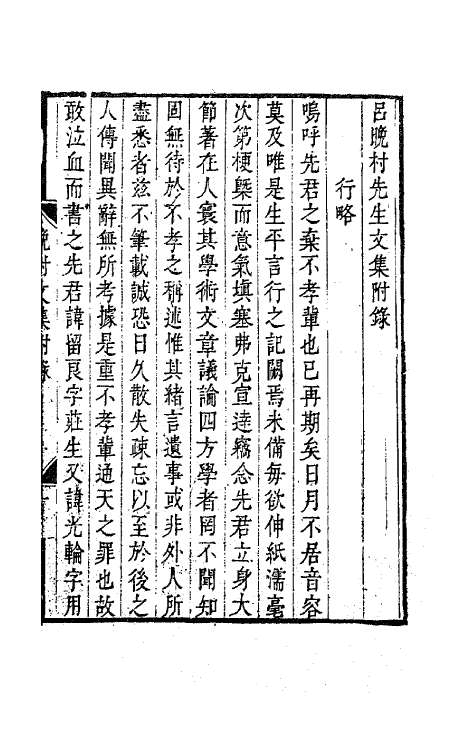 呂晚村先生文集附錄
行略
嗚呼先君之棄不孝輩也已再期矣日月不居音容
莫及唯是生平言行之記闕焉未備每欲伸紙濡毫
次第梗槩而意氣填塞弗克宣達竊念先君立身大
節著在人寰其學術文章議論四方學者罔不聞知
固無待於不孝之稱述惟其緒言遺事或非外人所
盡悉者茲不筆載誠恐日久散失疎忘以至於後之
人傳聞異辭無所考據是重不孝輩通天之罪也故
敢泣血而書之先君諱留良字莊生又諱光輪字用
晚村文集附錄